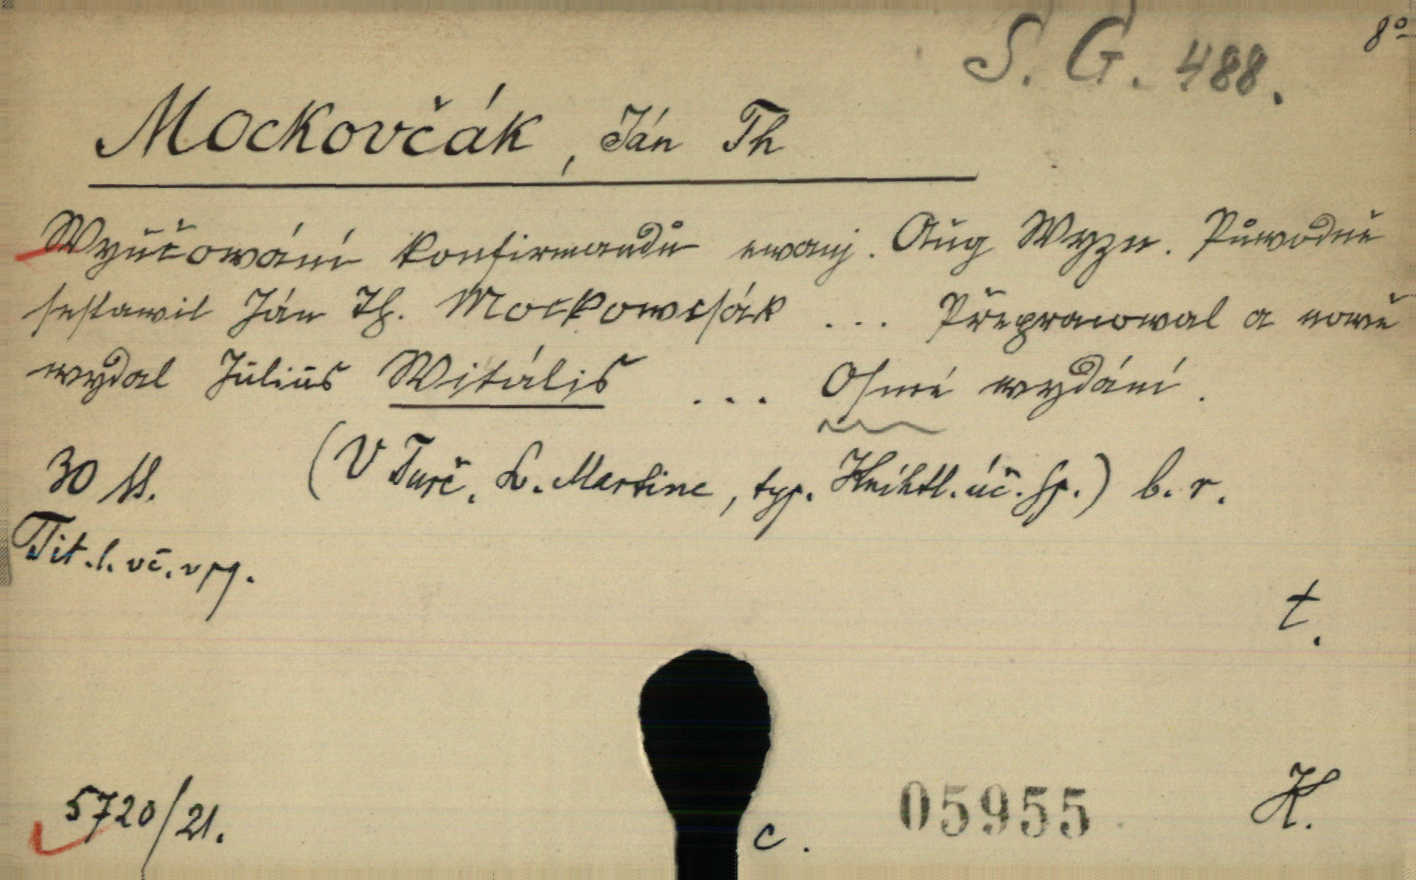 8°
S. G. 488.
Mockovčák, Ján Th
Wyučowáni konfirmandů ewanj. Aug Wyzn. Půwodně
sestawil Ján Th. Mockowcsák ... Přepracowal a nowě
wydal Julius Witális ... Osmé wydání.
30 ss. (V Turč. Sv. Martine, typ. Kníhtl. úč. sp.) b. r.
Tit. l. vč. vyj.
t.
5720/21.
c. 05955 K.